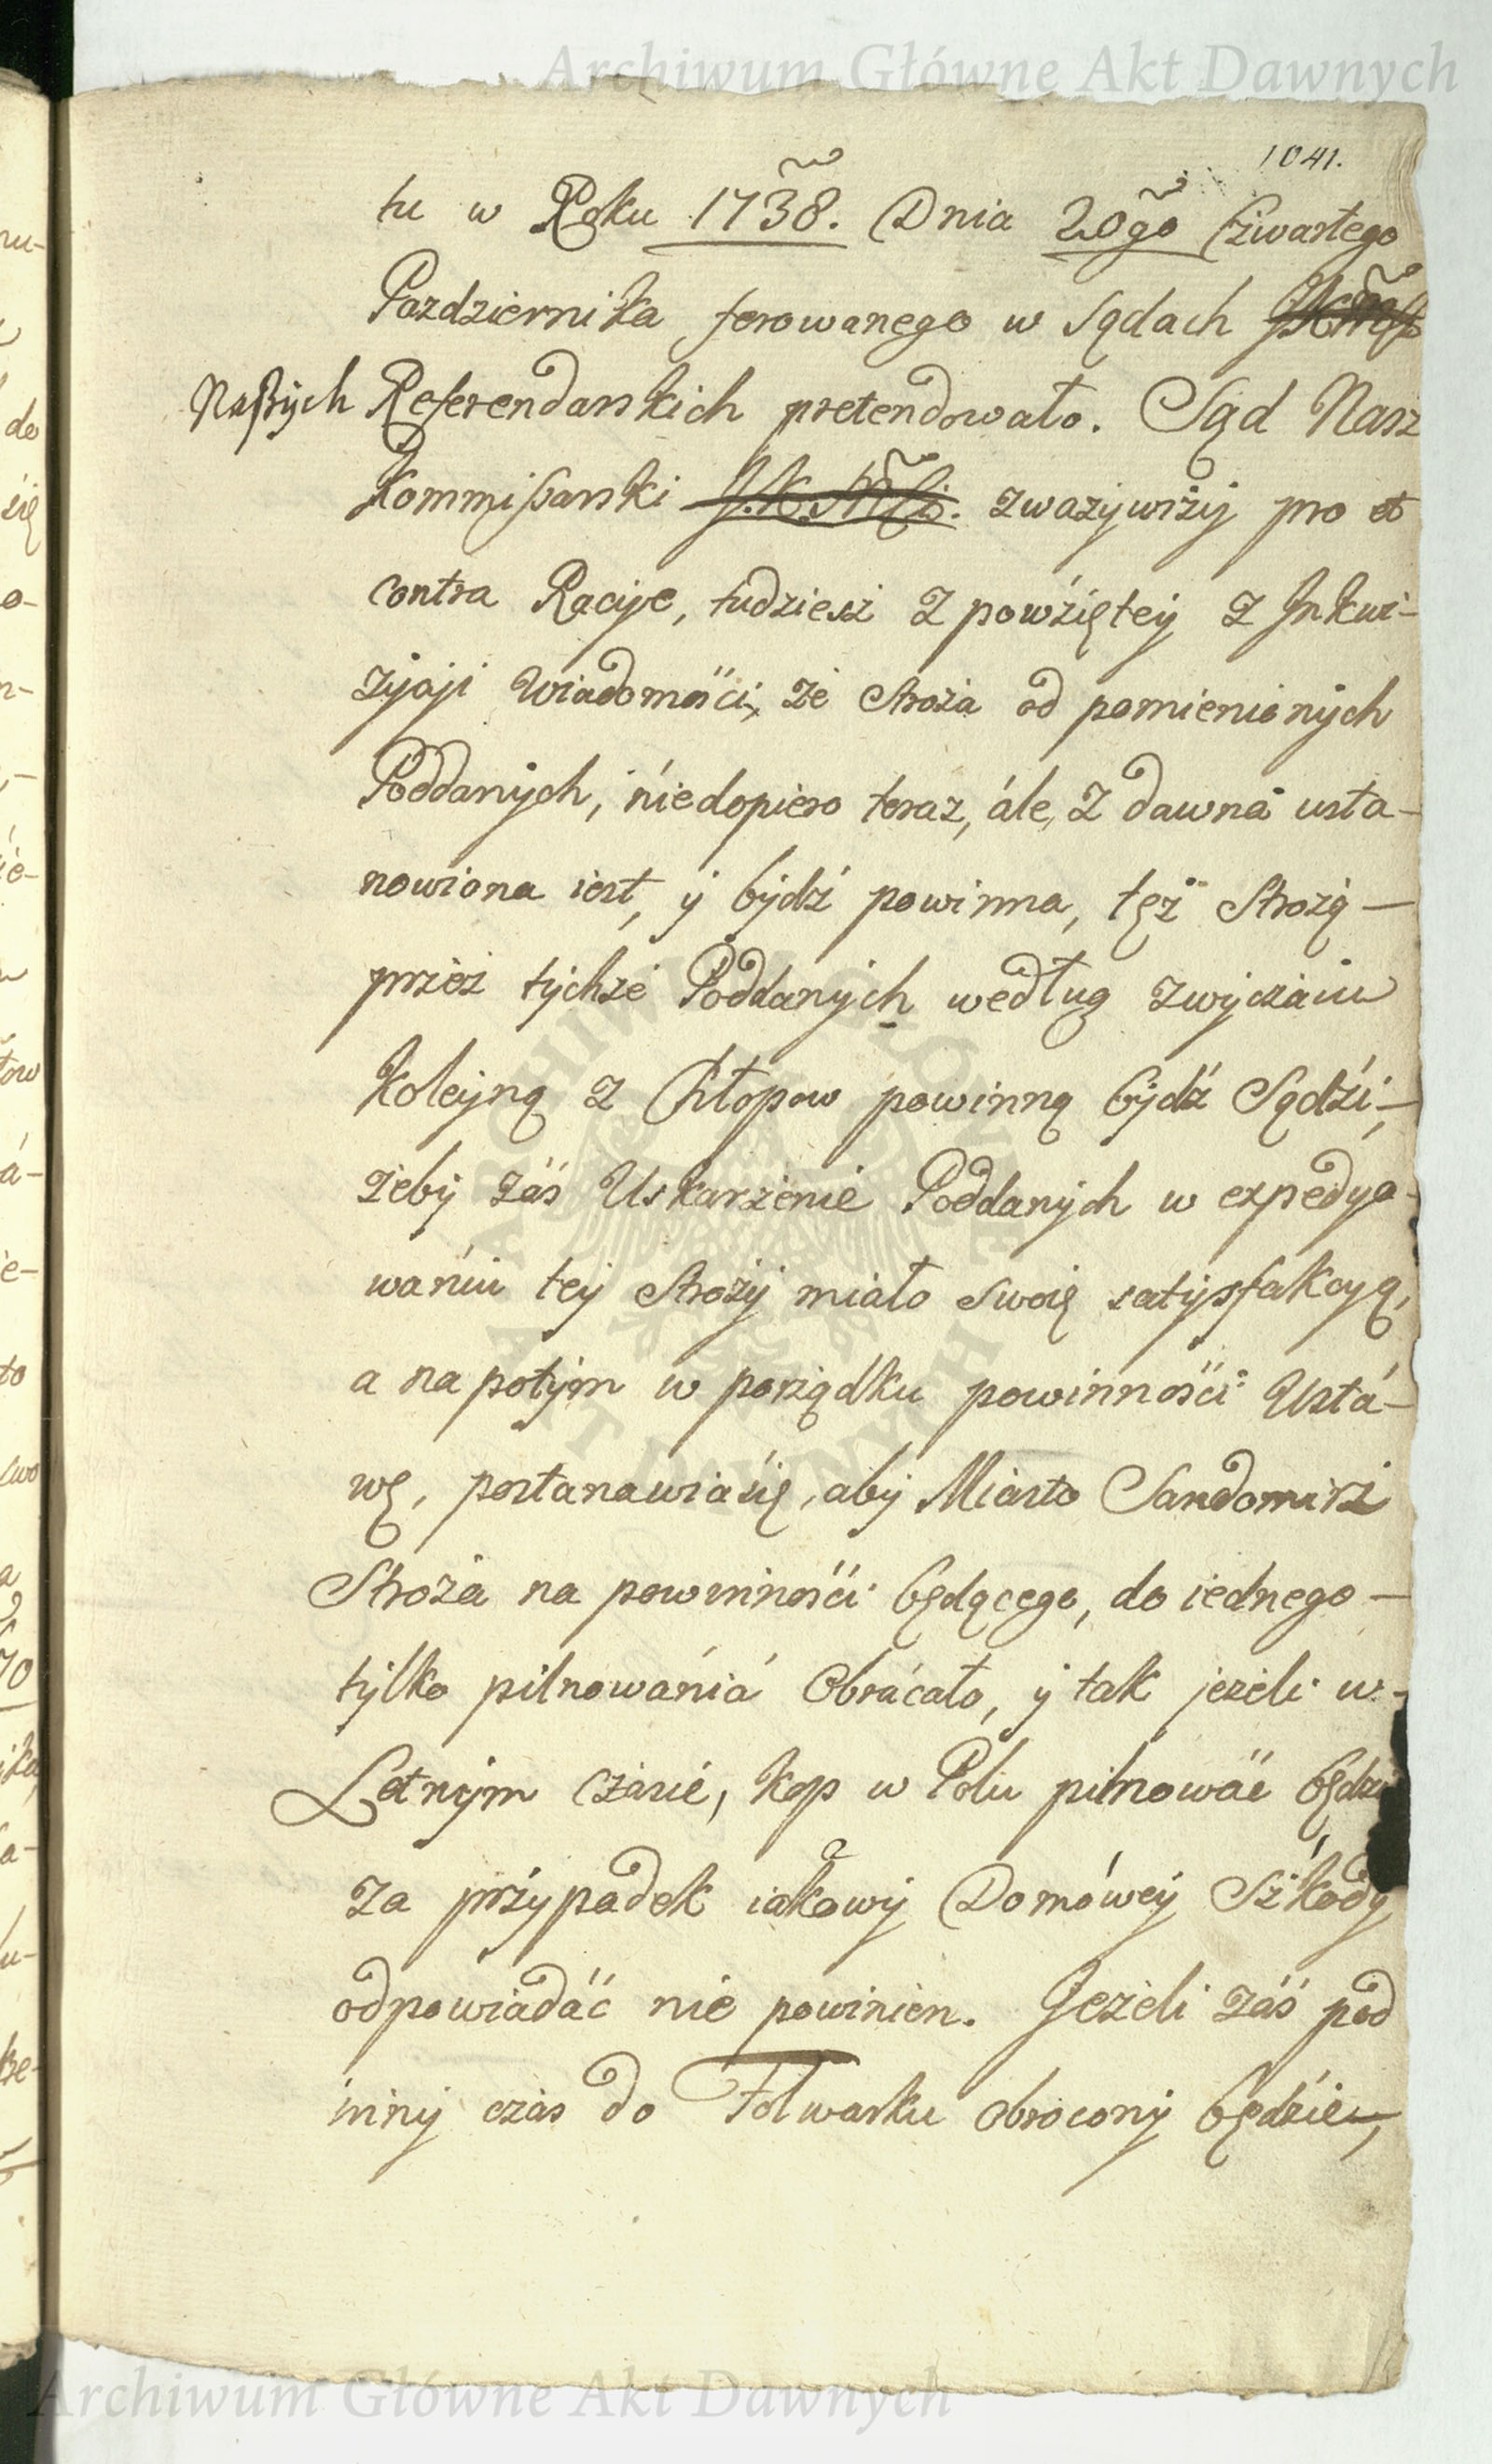 Archiwum Główne Akt Dawnych
1041.
tu w Roku 1738. Dnia 20go Czwartego
Pazdziernika ferowanego w Sądach
Naszych Referendarskich pretendowało. Sąd Nasz
Kommissarski J.K.Mći. zwazywszy pro et
contra Racije, tudziesz z powźiętey z Inkwi-
zycyi Wiadomośći, że Stroża od pomienionych
Poddanych, niedopiero teraz, ále, z dawná usta-
nowiona iest, y bydź powinna, tęż Strożą —
przez tychże Poddanych według zwyczaiu
Koleyną z Chłopow powinną bydź Sądźi,—
żeby záś Uskarżenie Poddanych w expedyo-
wańiu tey Stroży miało swoię satysfakcyą,
a na potym w porządku powinnośći Ustá-
wę, postanawia śię, aby Miasto Sandomirz
Stroża na powinnośći będącego, do iednego —
tylko pilnowániá obrácało, y tak jezeli w-
Letnym Czasie, kop w Polu pilnowáć będzie
za przypadek iakowy Domówey Szkody
odpowiadáć nie powinien. Jeżeli záś pod
inny czas do Folwarku obrocony będźie,
ARCHIWUM GŁÓWNE AKT DAWNYCH
Archiwum Główne Akt Dawnych